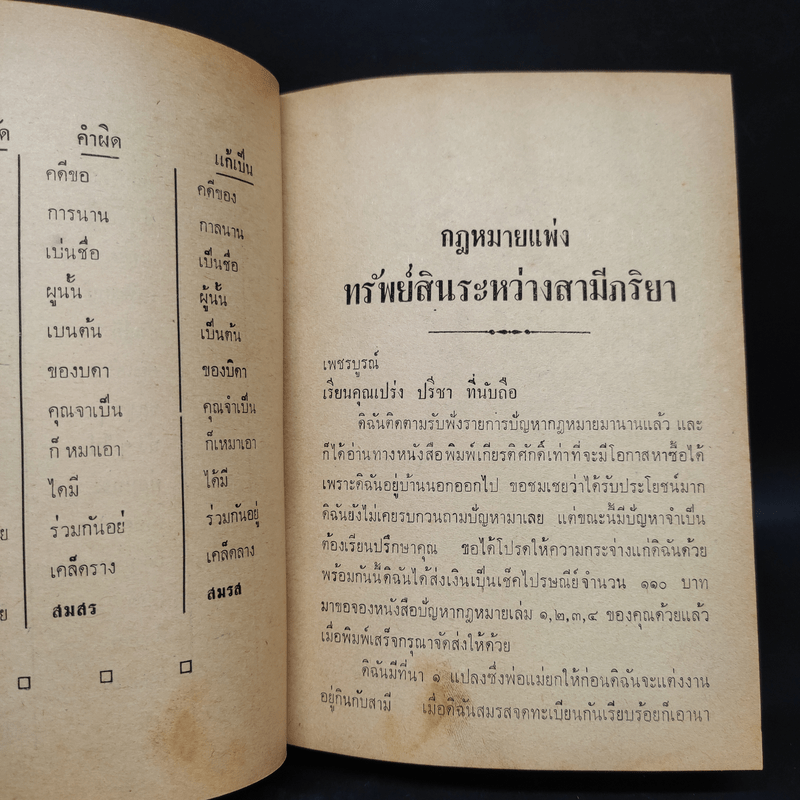 คำผิด
แก้เป็น
คดีขอ
คดีของ
การนาน
กาลนาน
เบ่นชื่อ
เป็นชื่อ
ผูนั้น
ผู้นั้น
เบนต้น
เป็นต้น
ของบดา
ของบิดา
คุณจาเป็น
คุณจำเป็น
ก็ หมาเอา
ก็เหมาเอา
ไดมี
ได้มี
ร่วมกันอย่
ร่วมกันอยู่
เคล็ดราง
เคล็ดลาง
สมสร
สมรส
กฎหมายแพ่ง
ทรัพย์สินระหว่างสามีภริยา
เพชรบูรณ์
เรียนคุณเปร่ง ปรีชา ที่นับถือ
ดิฉันติดตามรับฟังรายการปัญหากฎหมายมานานแล้ว และ
ก็ได้อ่านทางหนังสือพิมพ์เกียรติศักดิ์เท่าที่จะมีโอกาสหาซื้อได้
เพราะดิฉันอยู่บ้านนอกออกไป ขอชมเชยว่าได้รับประโยชน์มาก
ดิฉันยังไม่เคยรบกวนถามปัญหามาเลย แต่ขณะนี้มีปัญหาจำเป็น
ต้องเรียนปรึกษาคุณ ขอได้โปรดให้ความกระจ่างแก่ดิฉันด้วย
พร้อมกันนี้ดิฉันได้ส่งเงินเป็นเช็คไปรษณีย์จำนวน ๑๑๐ บาท
มาขอจองหนังสือปัญหากฎหมายเล่ม ๑,๒,๓,๔ ของคุณด้วยแล้ว
เมื่อพิมพ์เสร็จกรุณาจัดส่งให้ด้วย
ดิฉันมีที่นา ๑ แปลงซึ่งพ่อแม่ยกให้ก่อนดิฉันจะแต่งงาน
อยู่กินกับสามี เมื่อดิฉันสมรสจดทะเบียนกันเรียบร้อยก็เอานา